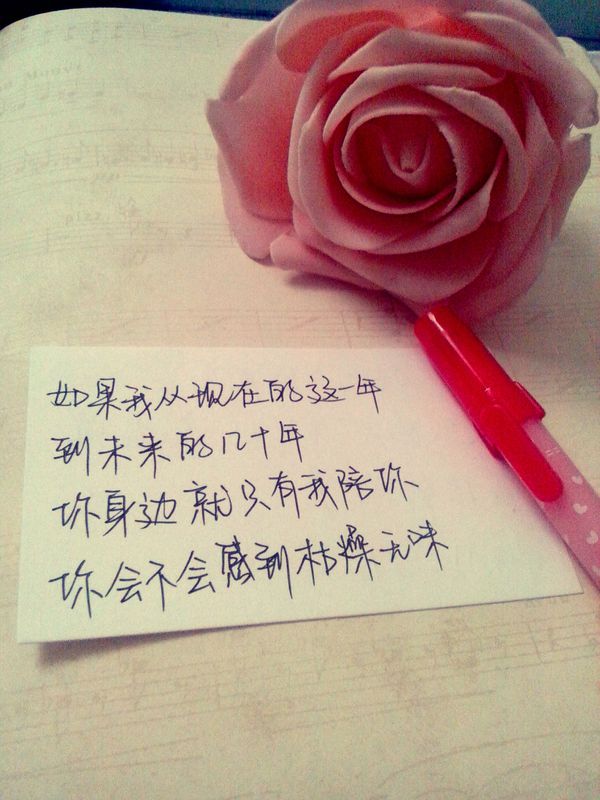 如果我从现在的这一年
到未来的几十年
你身边就只有我陪你
你会不会感到枯燥无味